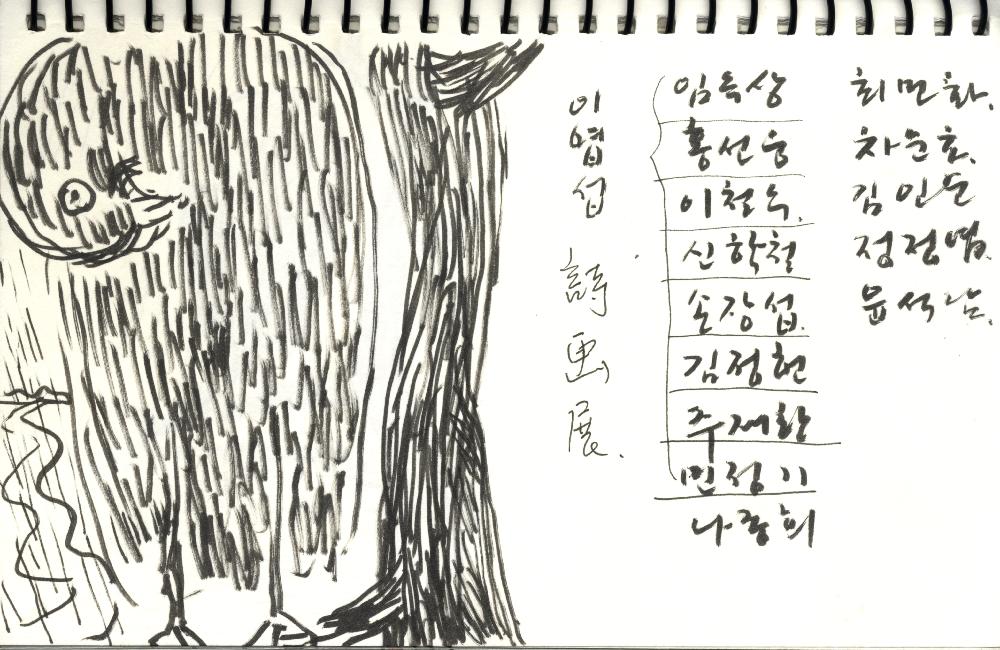 이엽섭 詩画展.
임옥상
홍선웅
이철수.
신학철
손장섭.
김정헌
주재환
민정기
나종희
최민화.
차순호.
김인순
정정엽.
윤석남.